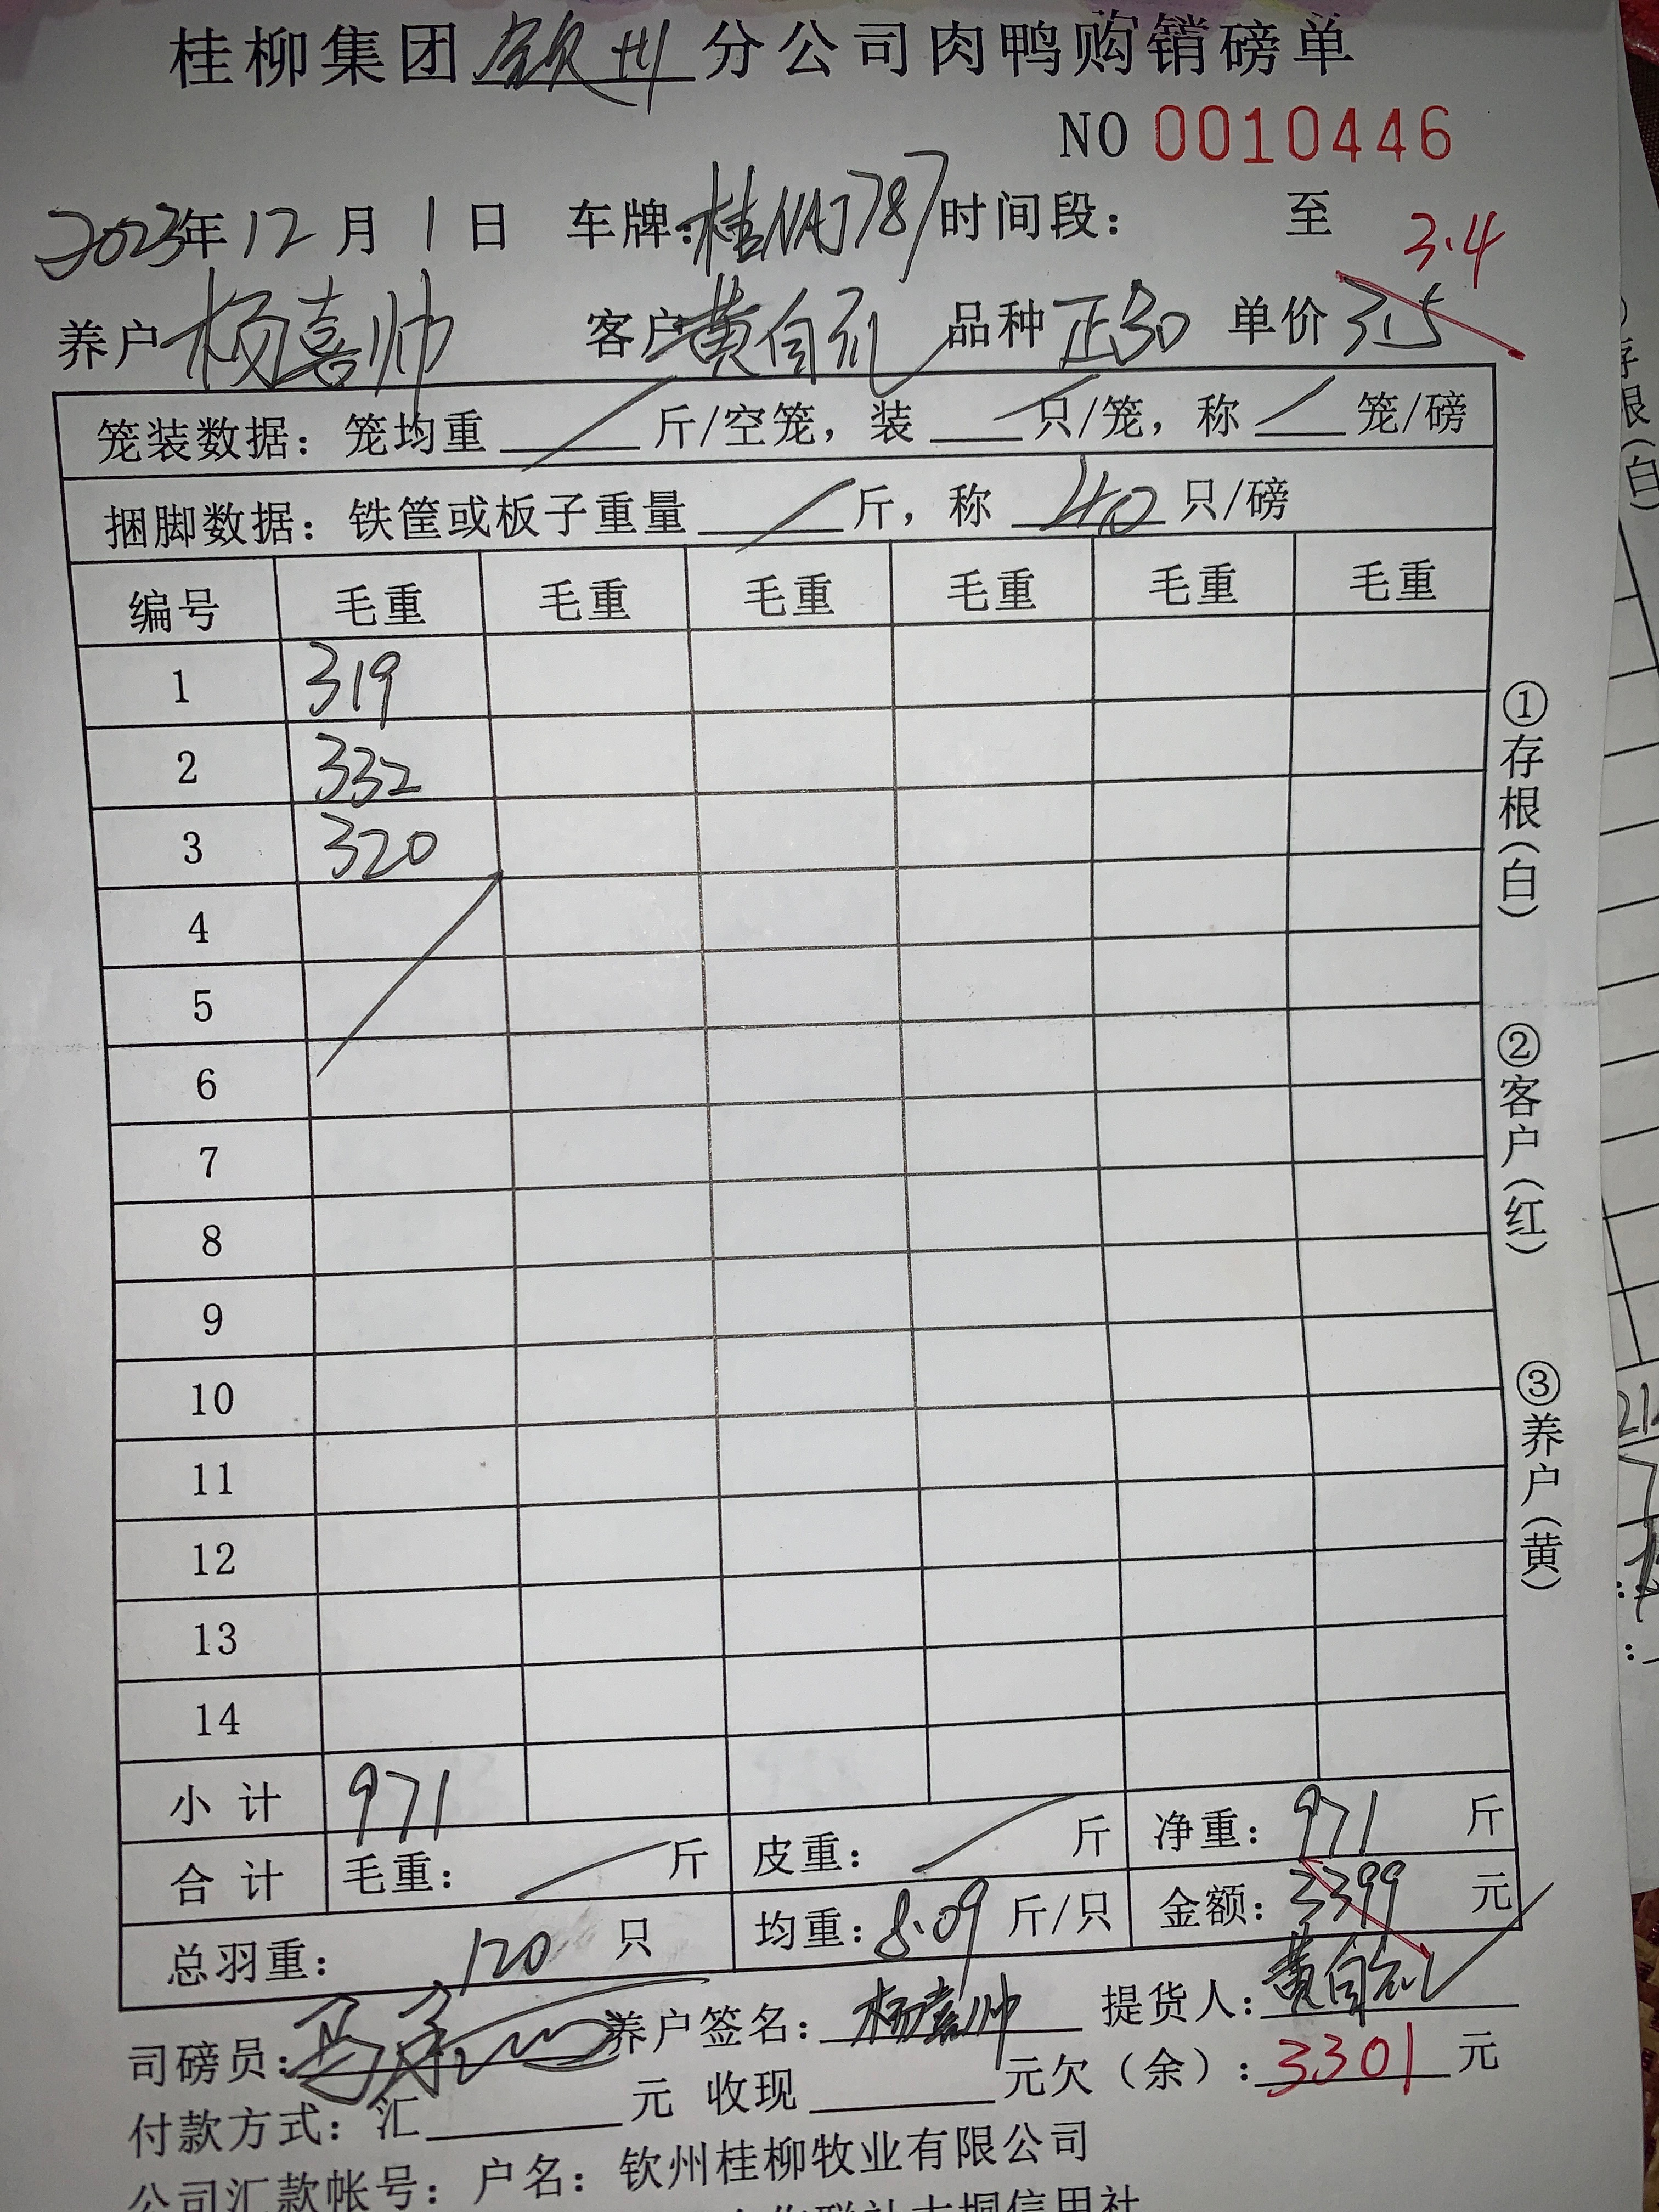 桂柳集团钦州分公司肉鸭购销磅单
NO 0010446
2023年12月1日 车牌:桂NAJ787 时间段: 至
3.4
养户 杨喜帅 客户 黄自元 品种 正30 单价 3.5
笼装数据:笼均重 / 斤/空笼,装 / 只/笼,称 / 笼/磅
捆脚数据:铁筐或板子重量 / 斤,称 40 只/磅
编号 毛重 毛重 毛重 毛重 毛重 毛重
1 319
2 332
3 320
4
5
6
7
8
9
10
11
12
13
14
小计 971
合计 毛重: / 斤 皮重: / 斤 净重:971 斤
总羽重: 120 只 均重:8.09 斤/只 金额:3399 元
司磅员: 养户签名:杨喜帅 提货人:黄自元
付款方式:汇 元 收现 元欠(余):3301 元
公司汇款帐号:户名:钦州桂柳牧业有限公司
①存根(白)
②客户(红)
③养户(黄)